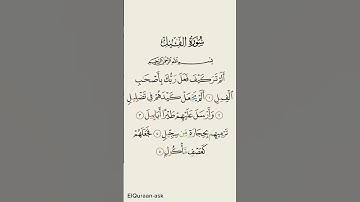 سُورَةُ الفِيلِ
بِسْمِ اللَّهِ الرَّحْمَٰنِ الرَّحِيمِ
أَلَمْ تَرَ كَيْفَ فَعَلَ رَبُّكَ بِأَصْحَٰبِ
ٱلْفِيلِ ١ أَلَمْ يَجْعَلْ كَيْدَهُمْ فِى تَضْلِيلٍ
٢ وَأَرْسَلَ عَلَيْهِمْ طَيْرًا أَبَابِيلَ ٣
تَرْمِيهِم بِحِجَارَةٍ مِّن سِجِّيلٍ ٤ فَجَعَلَهُمْ
كَعَصْفٍ مَّأْكُولٍ ٥
ElQuraan-ask